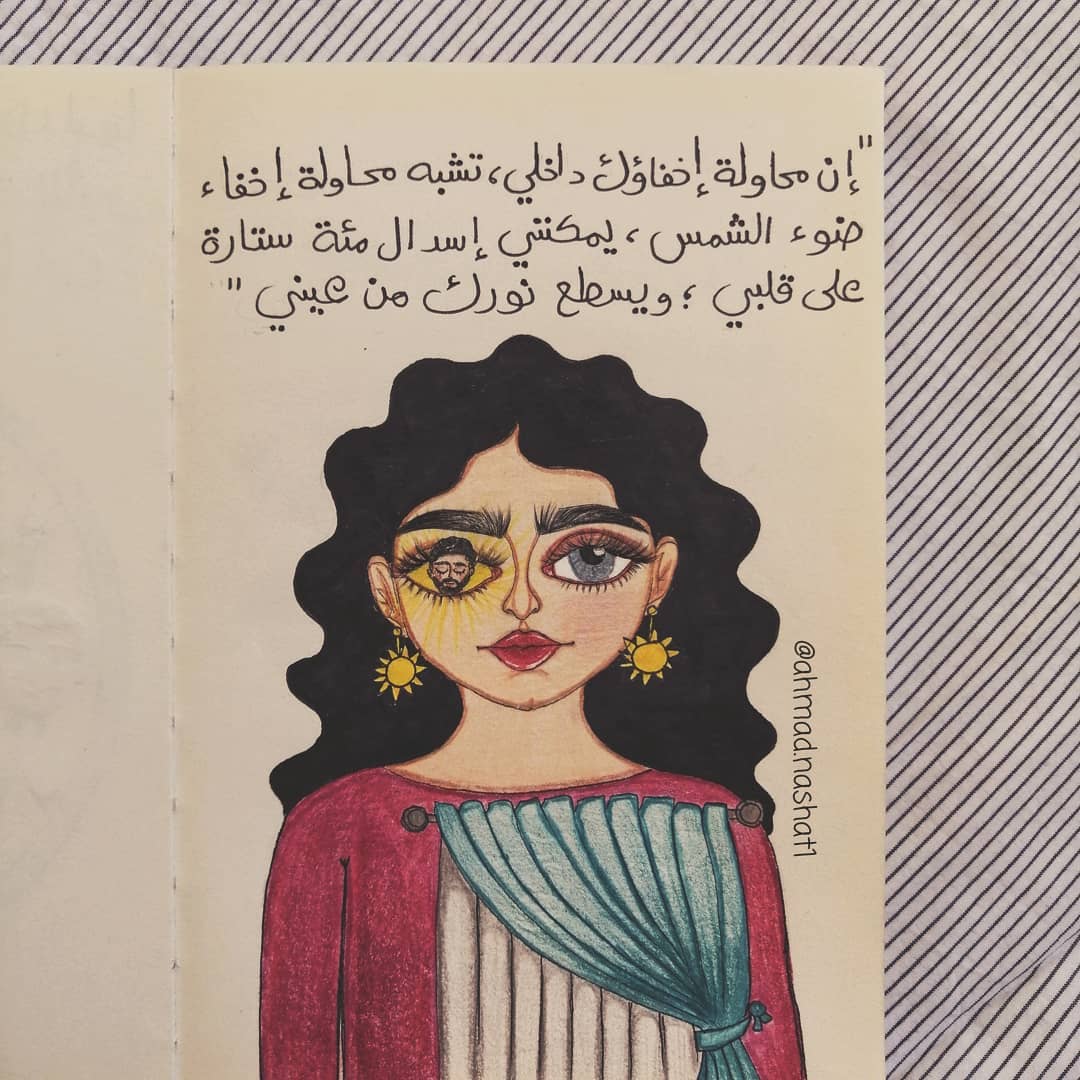 "إن محاولة إخفاؤك داخلي، تشبه محاولة إخفاء
ضوء الشمس، يمكنني إسدال مئة ستارة
على قلبي ؛ ويسطع نورك من عيني "
@ahmad.nashat1